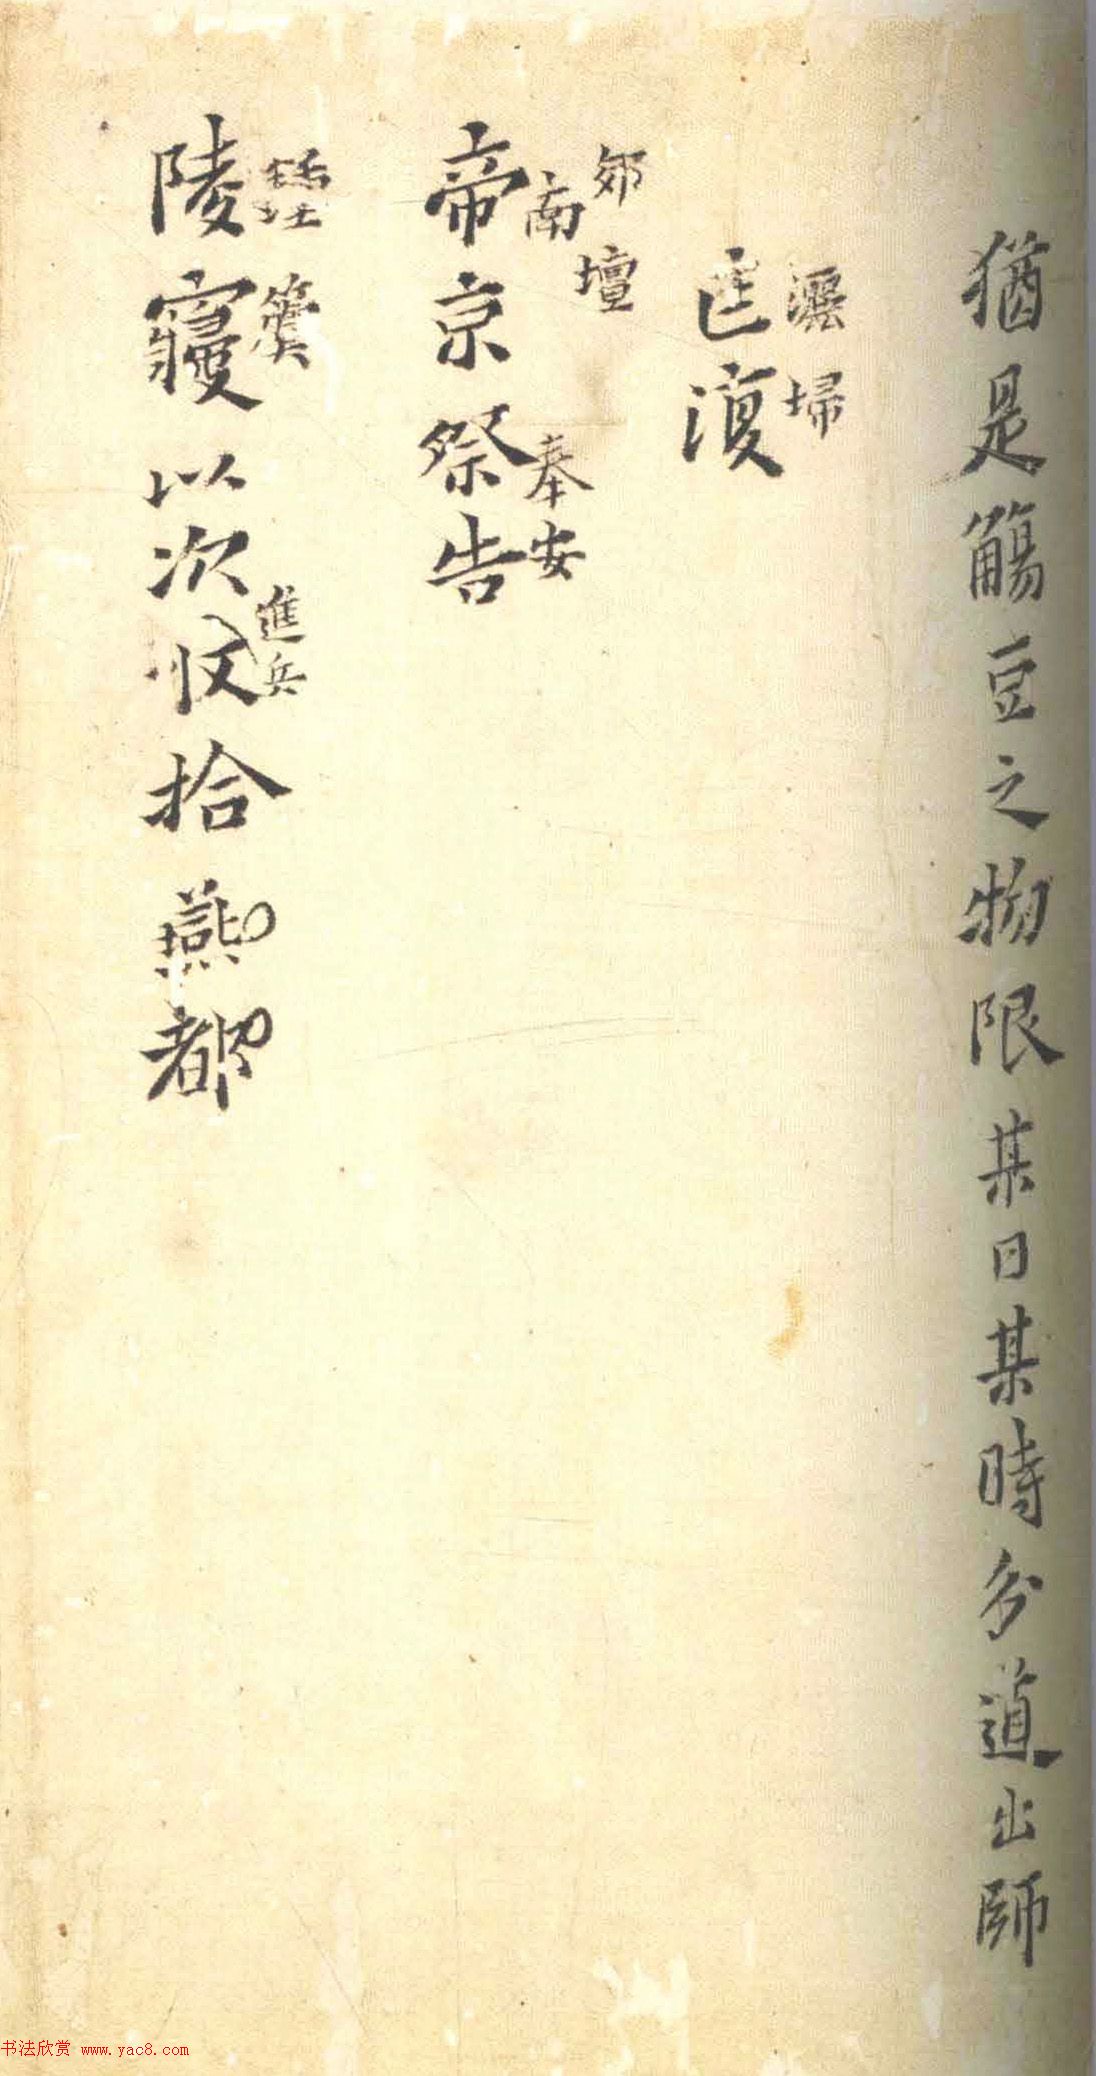 猶是觴豆之物限某日某時分道出師
埽
匡復
郊壇
南
奉安
帝京祭告
進兵
陵寢以次收拾燕都
书法欣赏 www.yac8.com